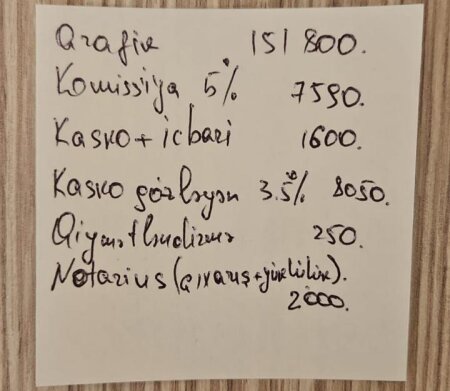 Qrafik 151 800.
Komissiya 5% 7590.
Kasko + icbari 1600.
Kasko gözləyən 3.5% 8050.
Qiymətləndirmə 250.
Notarius (çıxarış+yüklülük).
2000.